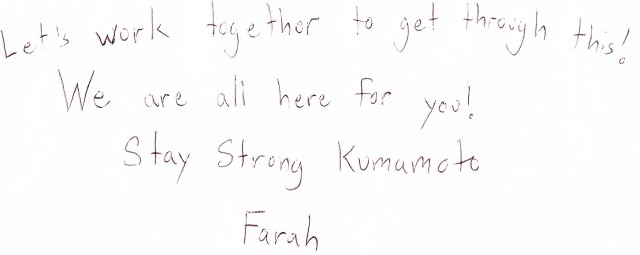 Let's work together to get through this!
We are all here for you!
Stay Strong Kumamoto
Farah